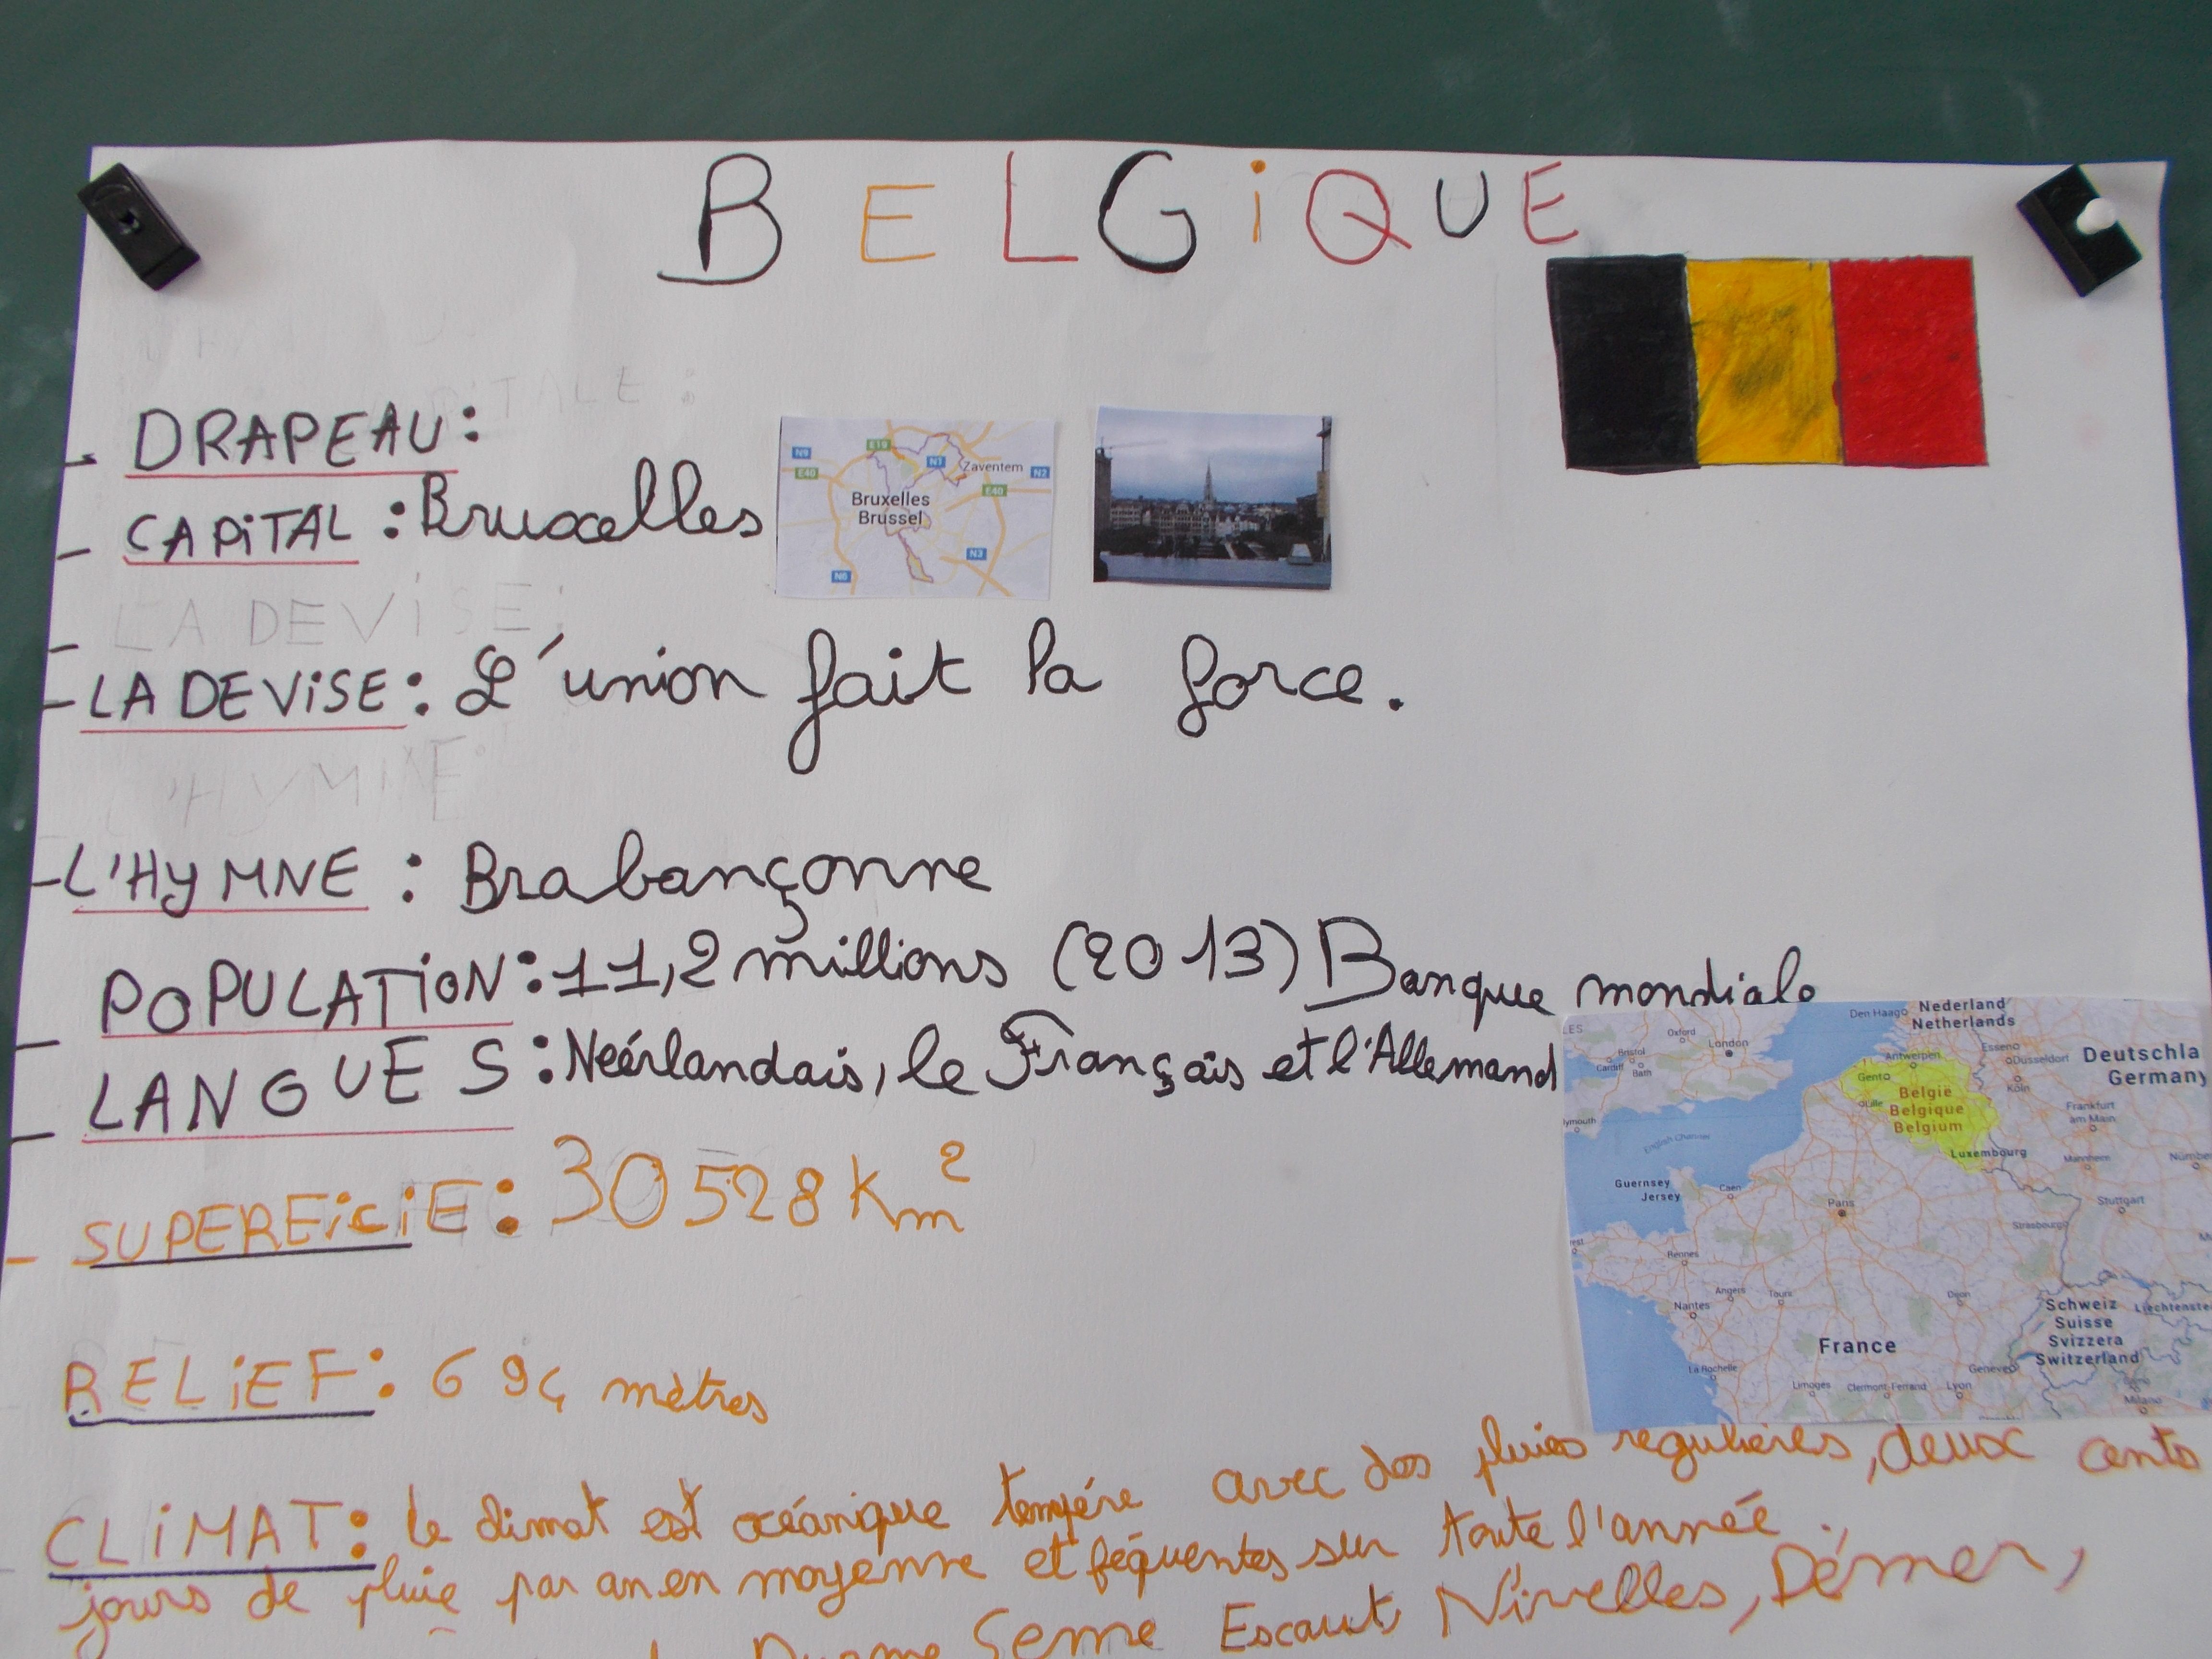 BELGiQUE
- DRAPEAU:
- CAPiTAL : Bruxelles
LA DEViSE:
- LA DEViSE: L'union fait la force.
L'HYMNE:
- L'HYMNE : Brabançonne
- POPULATiON: 11,2 millions (2013) Banque mondiale
- LANGUES: Neérlandais, le Français et l'Allemand
- SUPERFiCiE: 30 528 Km²
RELiEF: 694 mètres
CLiMAT: le climat est océanique tempére avec des pluies regulieres, deux cents
jours de pluie par an en moyenne et féquentes sur toute l'année.
Escaut Nivelles, Démer,
E19
N9
E40
N1
Zaventem
N2
E40
Bruxelles
Brussel
N3
N6
Den Haag
Nederland
Netherlands
Oxford
London
Bristol
Cardiff
Bath
Essen
Düsseldorf
Deutschla
Germany
Antwerpen
Gent
Köln
België
Belgique
Belgium
Lille
Frankfurt
am Main
lymouth
English Channel
Luxembourg
Mannheim
Nürnber
Guernsey
Jersey
Caen
Paris
Stuttgart
Strasbourg
Rennes
Angers
Tours
Dijon
Nantes
Schweiz
Suisse
Svizzera
Switzerland
Liechtenste
France
Geneve
La Rochelle
Limoges
Clermont-Ferrand
Lyon
Milano